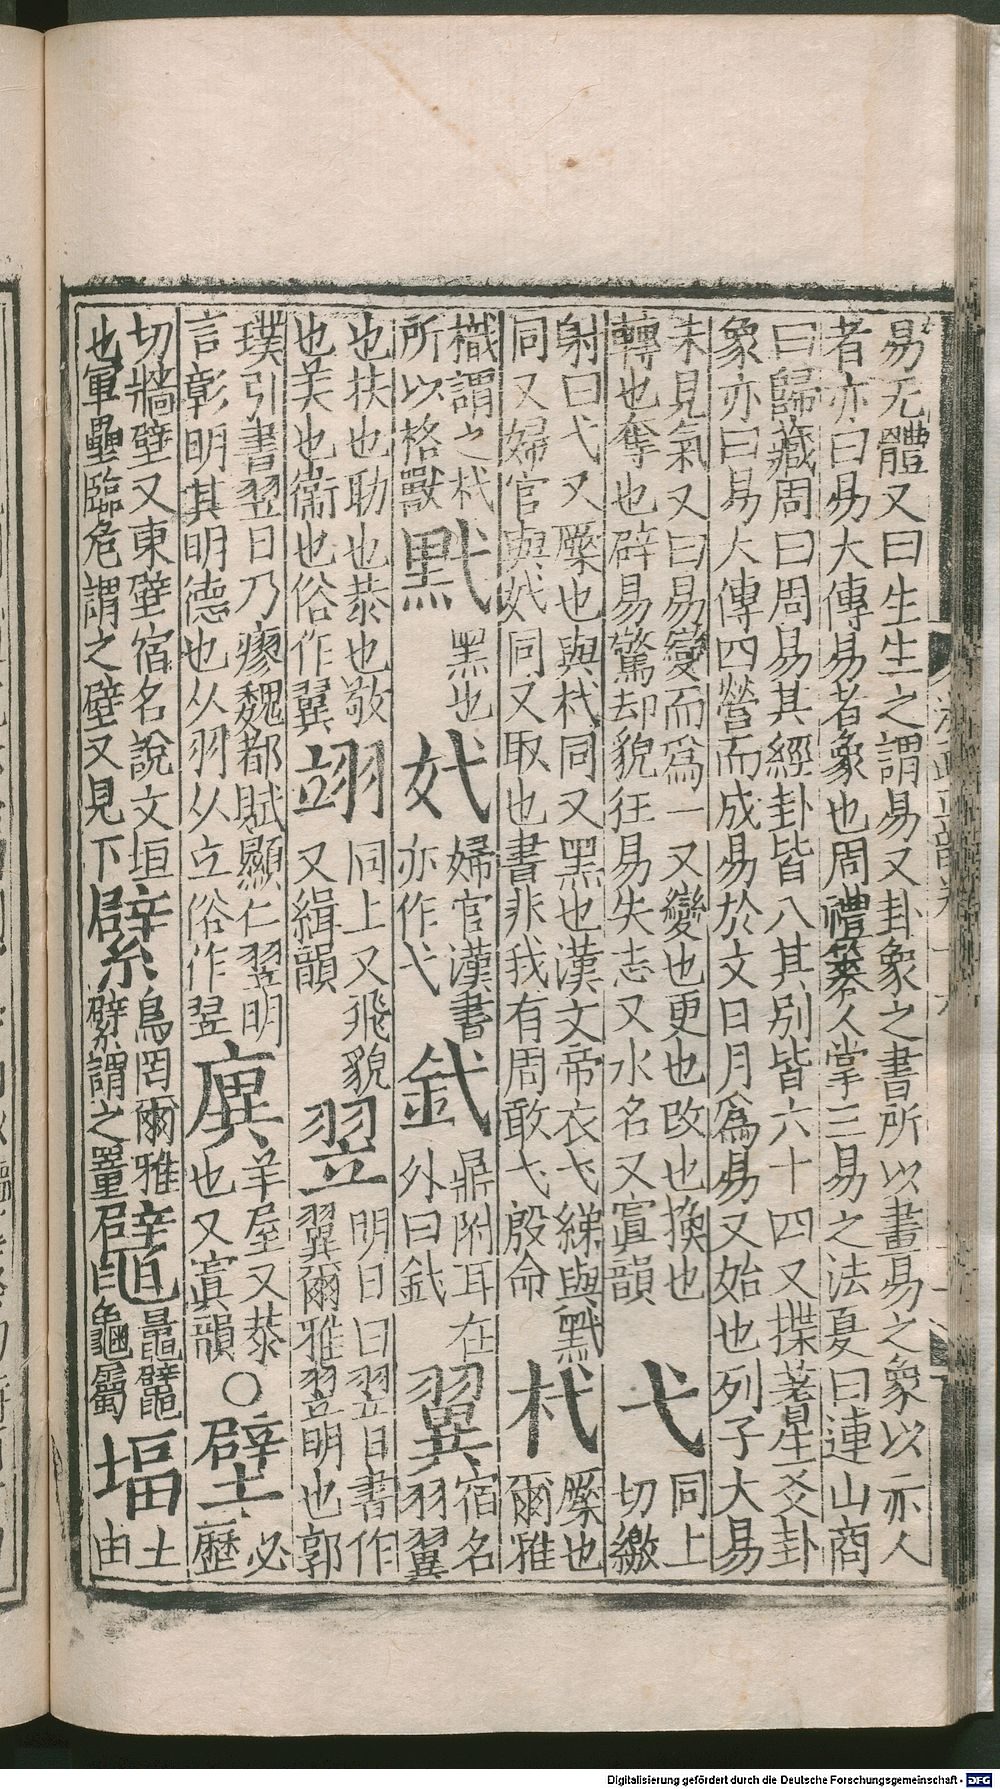 易无體又曰生生之謂易又卦象之書所以畫易之象以示人
者亦曰易大傳易者象也周禮簭人掌三易之法夏曰連山商
曰歸藏周曰周易其經卦皆八其別皆六十四又揲蓍星爻卦
象亦曰易大傳四營而成易於文日月爲易又始也列子大易
未見氣又曰易變而爲一又變也更也改也換也
轉也奪也辟易驚却貌狂易失志又水名又寘韻
弋
同上
切繳
射曰弋又橜也與杙同又黑也漢文帝衣弋綈與黓
同又婦官與妷同又取也書非我有周敢弋殷命
杙
橜也
爾雅
樴謂之杙
所以格獸
黓
黑也
㚤
婦官漢書
亦作弋
釴
鼎附耳在
外曰釴
翼
宿名
羽翼
也扶也助也恭也敬
也美也衞也俗作翼
翊
同上又飛貌
又緝韻
翌
明日曰翌日書作
翼爾雅翌明也郭
璞引書翌日乃瘳魏都賦顯仁翌明
言彰明其明德也从羽从立俗作翌
廙
羊屋又恭
也又寘韻
○壁
必
歷
切牆壁又東壁宿名說文垣
也軍壘臨危謂之壁又見下
繴
鳥罔爾雅
繴謂之罿
鼊
鼊
龜屬
堛
土
由
Digitalisierung gefördert durch die Deutsche Forschungsgemeinschaft - DFG